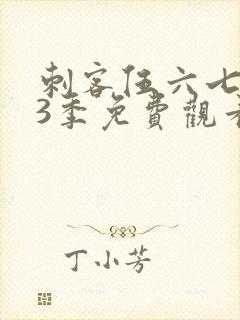 刺客伍六七
3季免費觀看
丁小芳